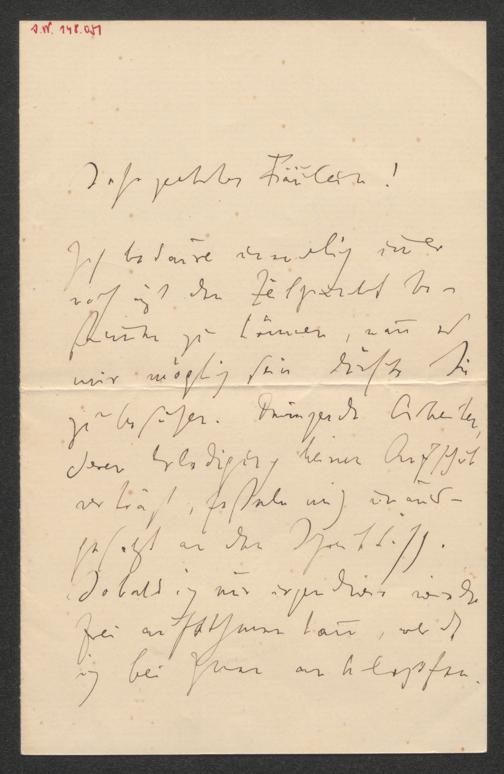 Sehr geehrtes Fräulein!
Ich bedaure unendlich immer
noch nicht den Zeitpunkt be-
stimmen zu können, wann es
mir möglich sein dürfte Sie
zu besuchen. Dringende Arbeiten,
deren Erledigung keinen Aufschub
verträgt, fesseln mich unaus-
gesetzt an den Schreibtisch.
Sobald ich nur irgendwie wieder
frei aufathmen kann, werde
ich bei Ihnen anklopfen.